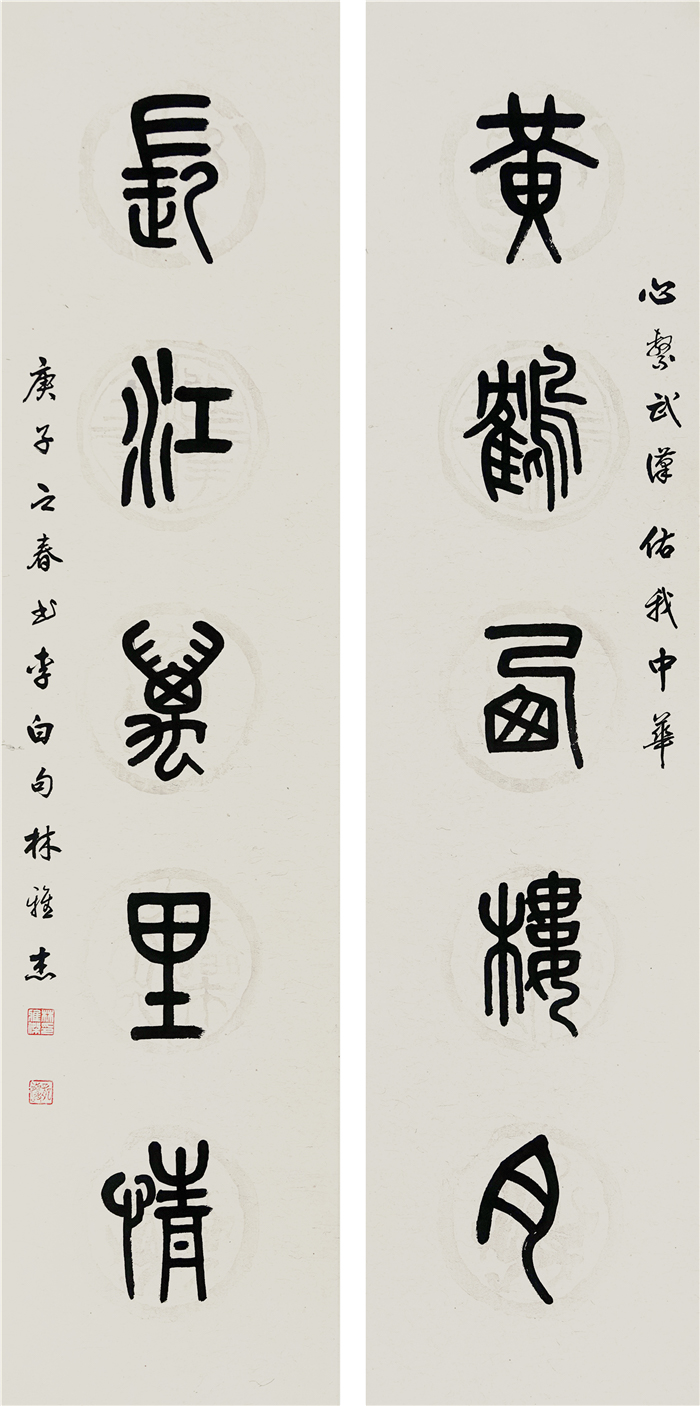 心繫武漢佑我中華
黃鶴西樓月
長江萬里情
庚子之春书李白句林雅杰